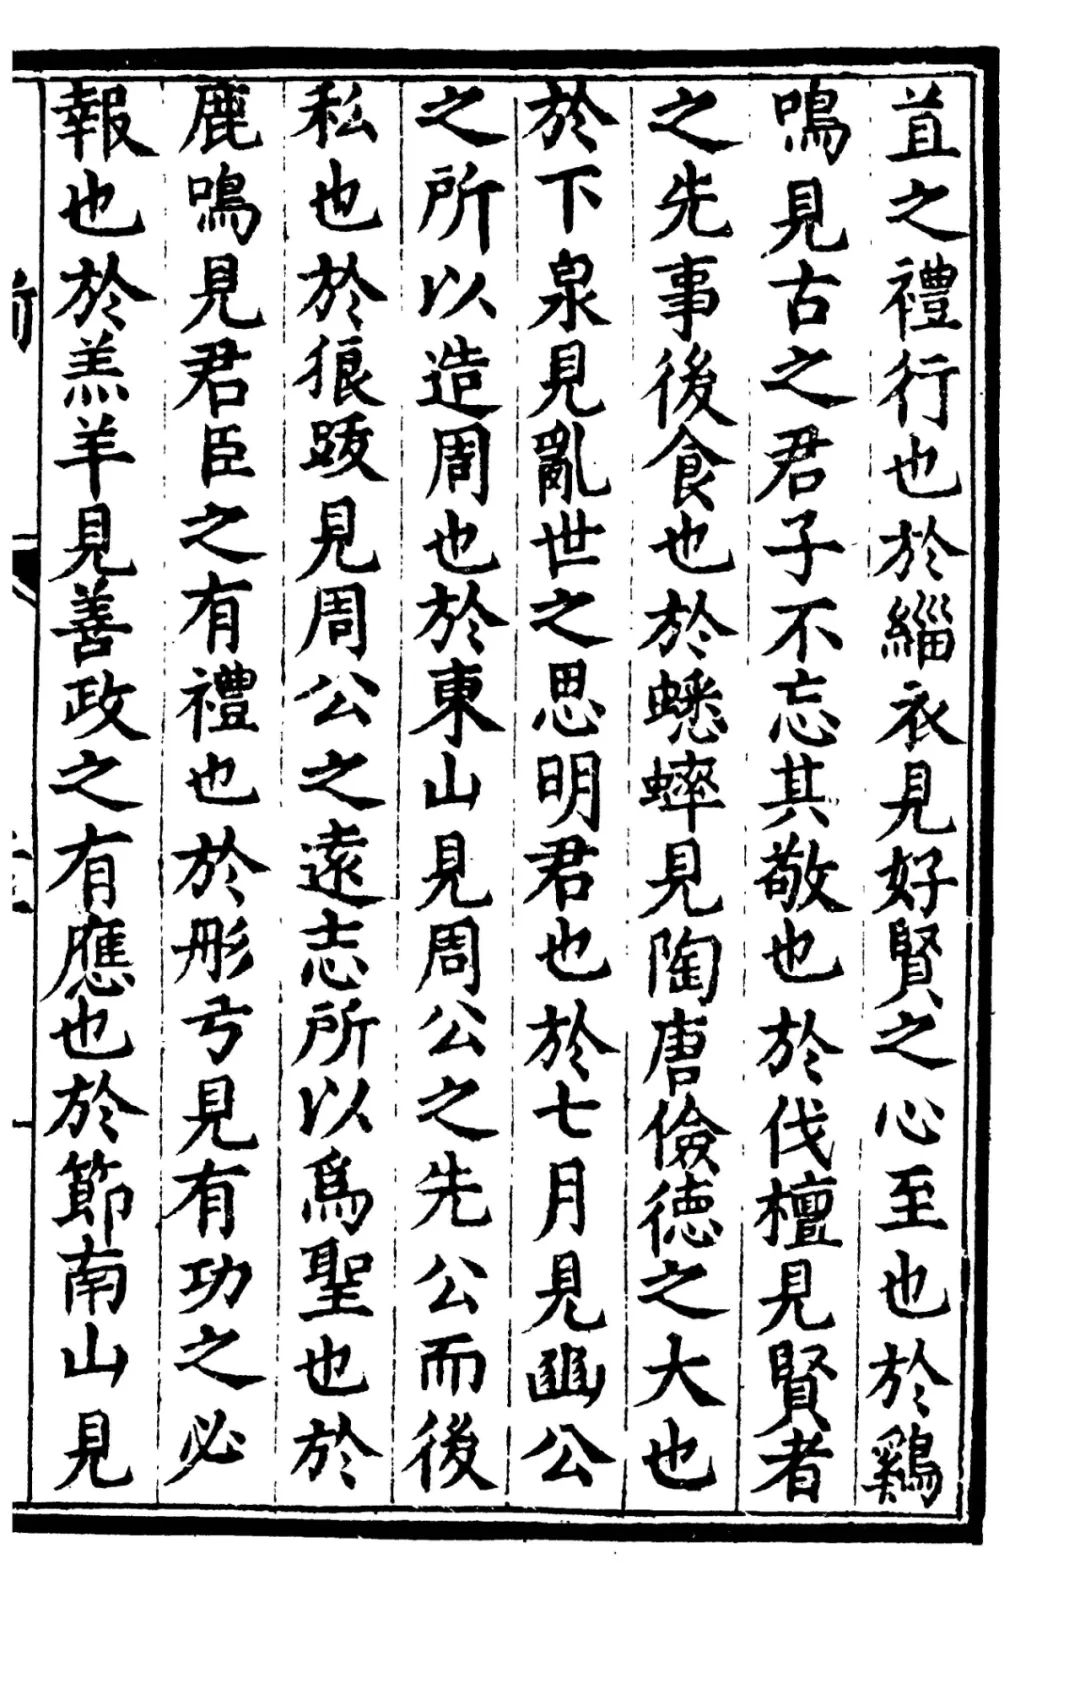 苴之禮行也於緇衣見好賢之心至也於鷄
鳴見古之君子不忘其敬也於伐檀見賢者
之先事後食也於蟋蟀見陶唐儉德之大也
於下泉見亂世之思明君也於七月見豳公
之所以造周也於東山見周公之先公而後
私也於狼跋見周公之遠志所以爲聖也於
鹿鳴見君臣之有禮也於彤弓見有功之必
報也於羔羊見善政之有應也於節南山見